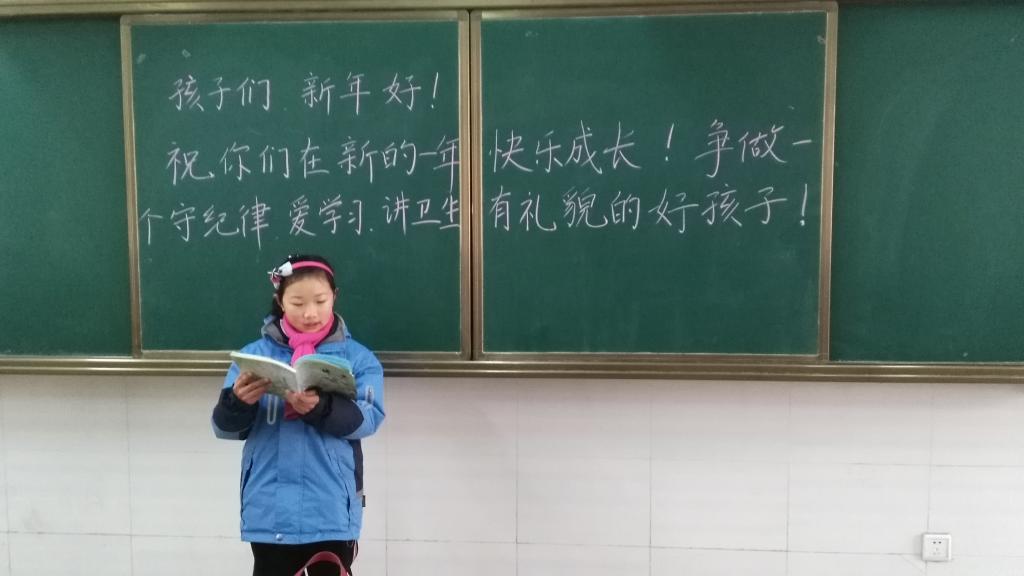 孩子们 新年好!
祝你们在新的一年快乐成长!争做一
个守纪律.爱学习.讲卫生有礼貌的好孩子!